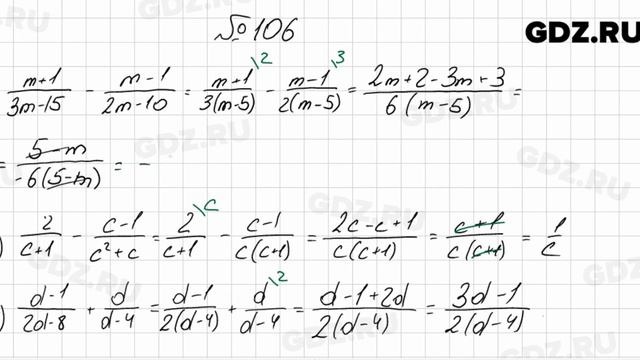 №106
GDZ.RU
(m+1)/(3m-15) - (m-1)/(2m-10) = (m+1)\2/3(m-5) - (m-1)\3/2(m-5) = (2m+2-3m+3)/6(m-5) =
= (5-m)/-6(5-m) = -
) 2/(c+1) - (c-1)/(c²+c) = 2\c/(c+1) - (c-1)/c(c+1) = (2c-c+1)/c(c+1) = (c+1)/c(c+1) = 1/c
) (d-1)/(2d-8) + d/(d-4) = (d-1)/2(d-4) + d\2/(d-4) = (d-1+2d)/2(d-4) = (3d-1)/2(d-4)